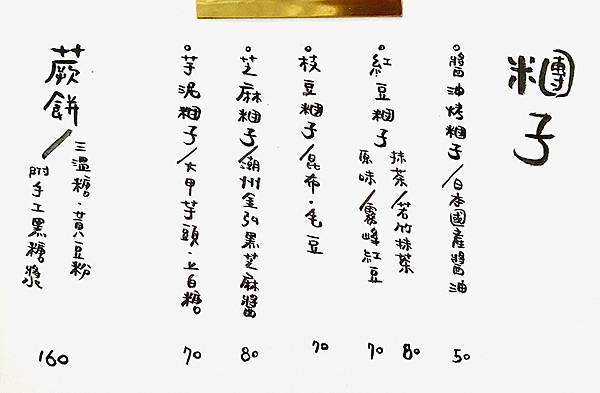 糰子
醬油烤糰子/日本國產醬油 50
紅豆糰子
抹茶/若竹抹茶 80
原味/霧峰紅豆 70
枝豆糰子/昆布・毛豆 70
芝麻糰子/潮州金弘黑芝麻醬 80
芋泥糰子/大甲芋頭・上白糖 70
蕨餅/三溫糖・黃豆粉
附手工黑糖漿 160